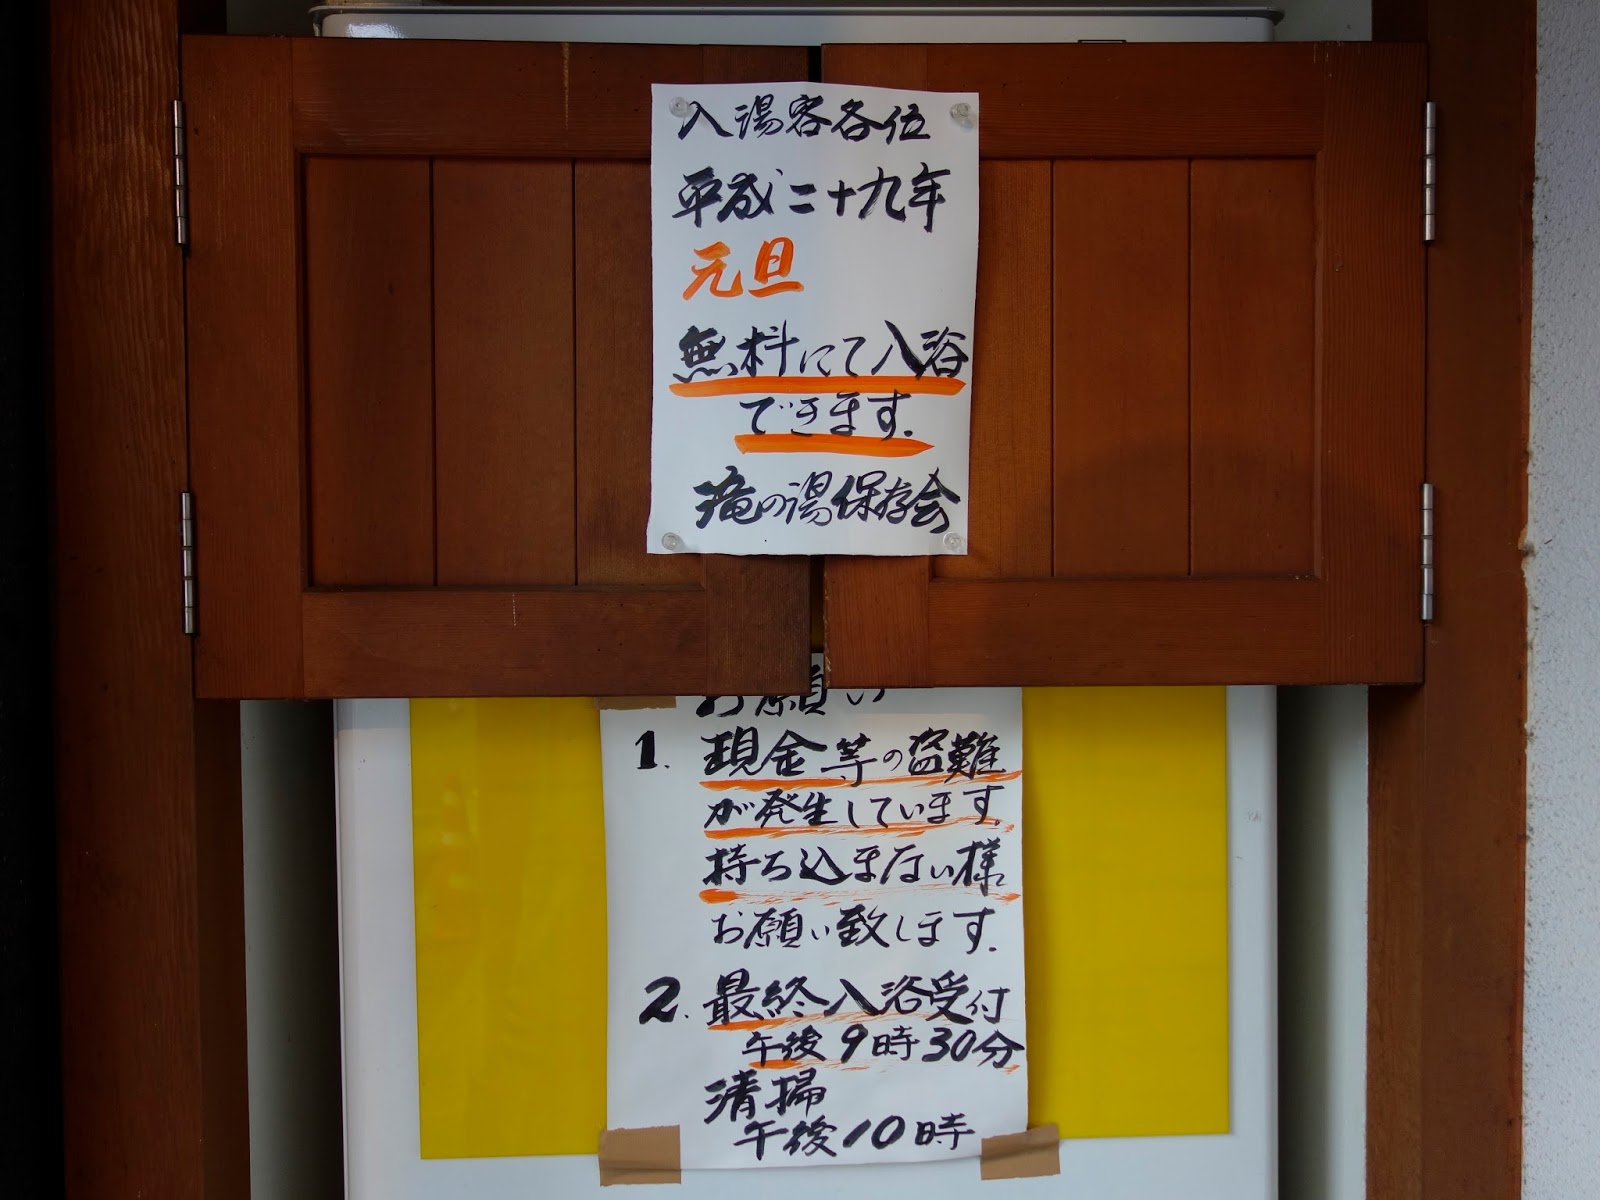 入湯客各位
平成二十九年
元旦
無料にて入浴
できます.
滝の湯保存会
お願い
1. 現金等の盗難
が発生しています.
持ち込まない様
お願い致します.
2. 最終入浴受付
午後9時30分
清掃
午後10時